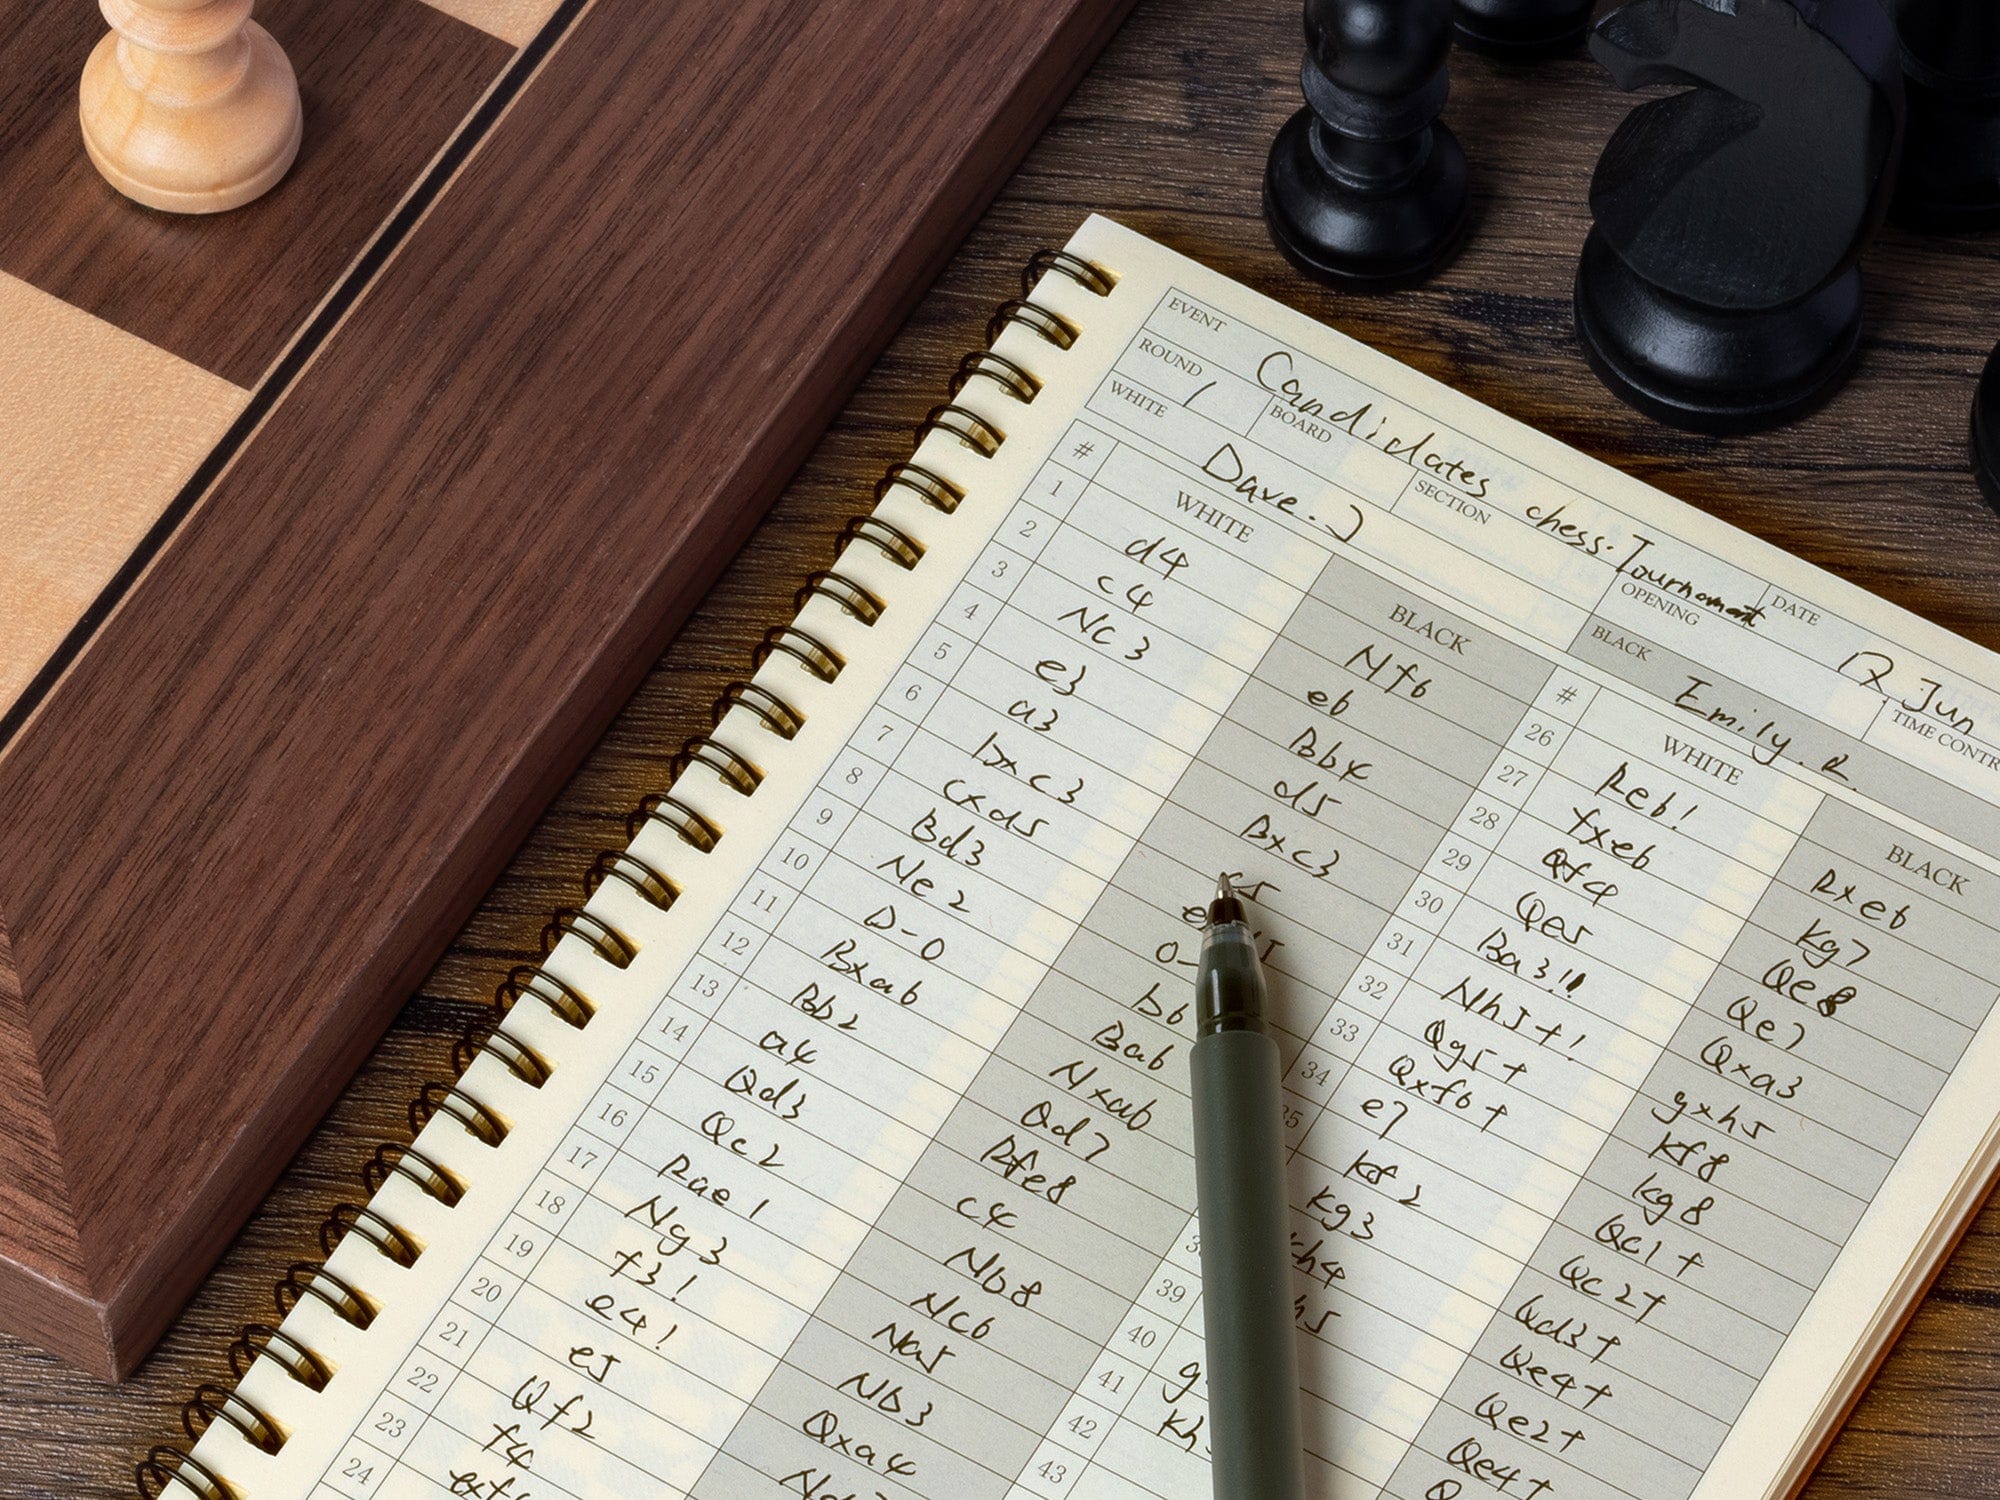 EVENT Candidates chess. Tournament DATE 2 Jun
ROUND 1 BOARD SECTION OPENING TIME CONTR
WHITE Dave. J BLACK Emily. R.
# WHITE BLACK
1 d4 Nf6
2 c4 e6
3 Nc3 Bb4
4 e3 d5
5 a3 Bxc3
6 bxc3 c5
7 cxd5
8 Bd3 0-
9 Ne2 b6
10 0-0 Ba6
11 Bxa6 Nxa6
12 Bb2 Qd7
13 a4 Rfe8
14 Qd3 c4
15 Qc2 Nb8
16 Rae1 Nc6
17 Ng3 Na5
18 f3! Nb3
19 e4! Qxa4
20 e5
21 Qf2
22 f4
23
24
# WHITE BLACK
26 Re6! Rxe6
27 fxe6 Kg7
28 Qf4 Qe8
29 Qe5 Qe7
30 Ba3!! Qxa3
31 Nh5+! gxh5
32 Qg5+ Kf8
33 Qxf6+ Kg8
34 e7 Qc1+
35 Kf2 Qc2+
Kg3 Qd3+
Kh4 Qe4+
Qe2+
39 Qe4+
40
41
42
43